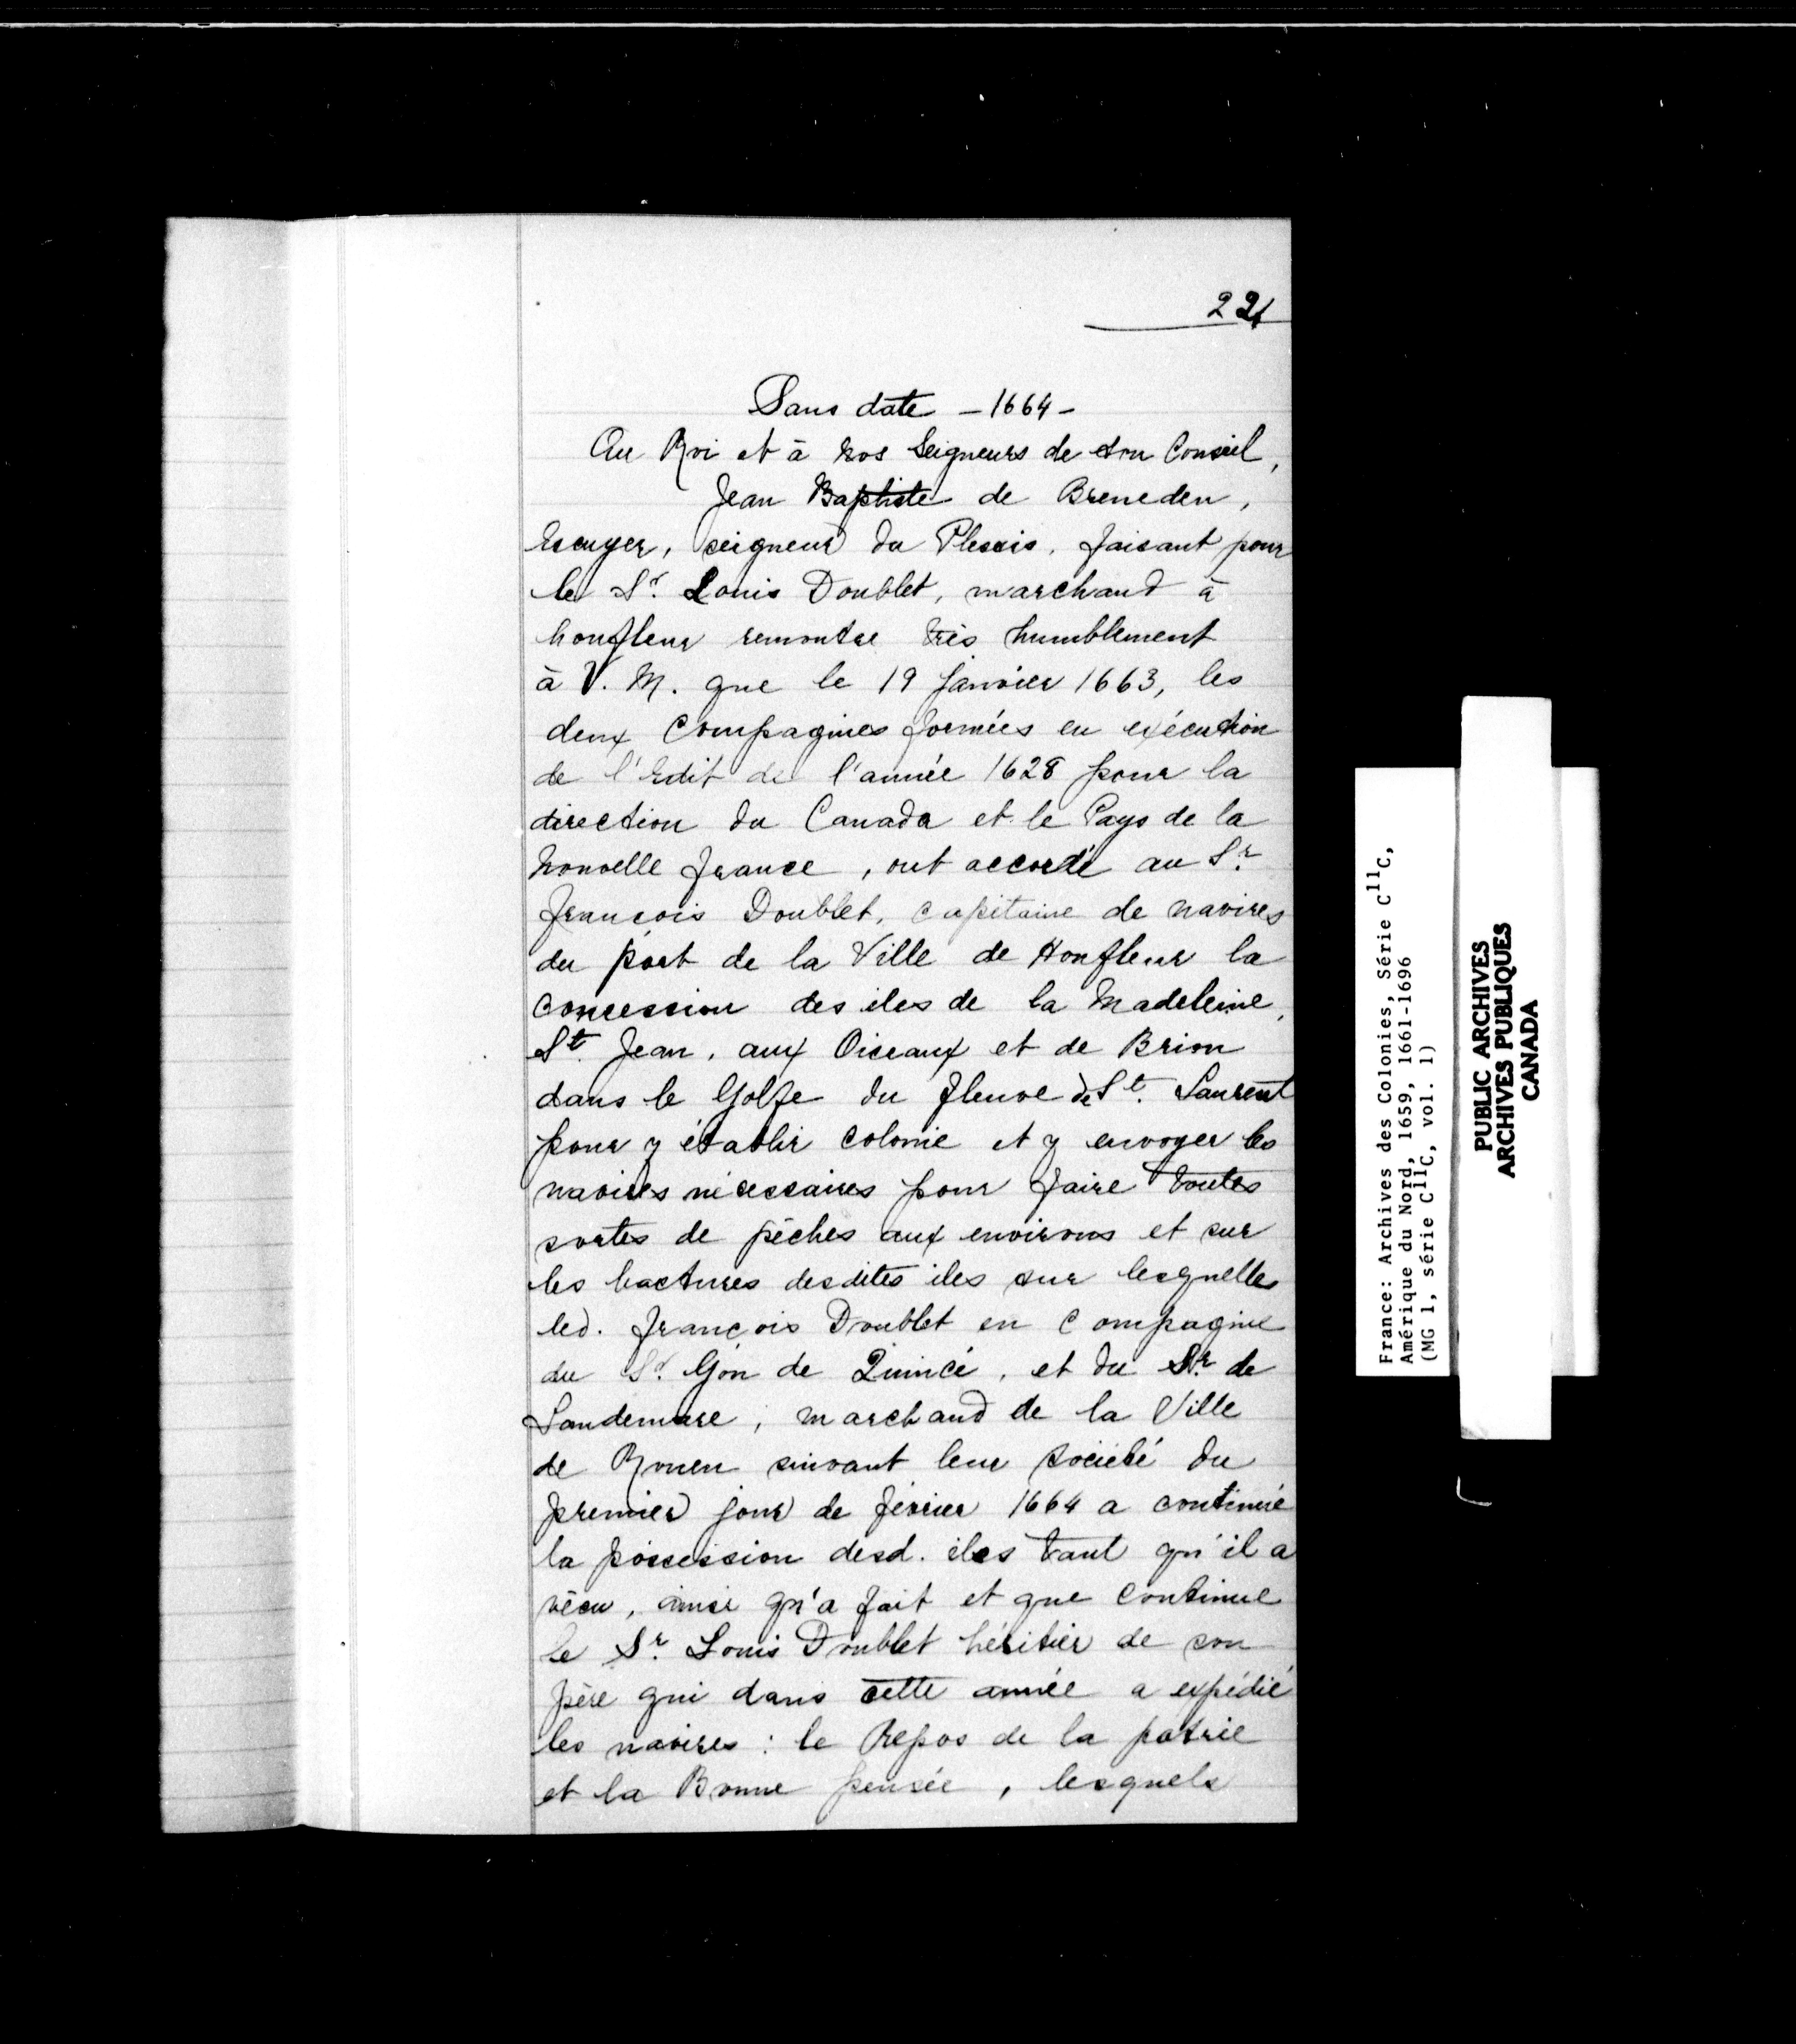 221
Sans date - 1664 -
Au Roi et à Nos Seigneurs de son Conseil,
Jean Baptiste de Breneden,
Escuyer, seigneur du Plessis, faisant pour
le Sr. Louis Doublet, marchand à
honfleur remontre très humblement
à V. M. que le 19 Janvier 1663, les
deux Compagnies formées en exécution
de l'Edit de l'année 1628 pour la
direction du Canada et le Pays de la
Nouvelle france, ont accordé au Sr.
François Doublet, capitaine de navires
du port de la Ville de Honfleur la
concession des iles de la Madeleine,
St. Jean, aux Oiseaux et de Brion
dans le Golfe du fleuve de St. Laurent
pour y établir colonie et y envoyer les
navires nécessaires pour faire toutes
sortes de pêches aux environs et sur
les bactures desdites iles sur lesquelles
led. François Doublet en Compagnie
du Sr. Gon de Quincé, et du Sr. de
Landemare, marchand de la Ville
de Rouen suivant leur société du
premier jour de février 1664 a continué
la possession desd. iles tant qu'il a
vécu, ainsi qu'a fait et que continue
le Sr. Louis Doublet héritier de son
père qui dans cette année a expédié
les navires : le Repos de la patrie
et la Bonne pensée, lesquels
France: Archives des Colonies, Série C11C,
Amérique du Nord, 1659, 1661-1696
(MG 1, série C11C, vol. 1)
PUBLIC ARCHIVES
ARCHIVES PUBLIQUES
CANADA